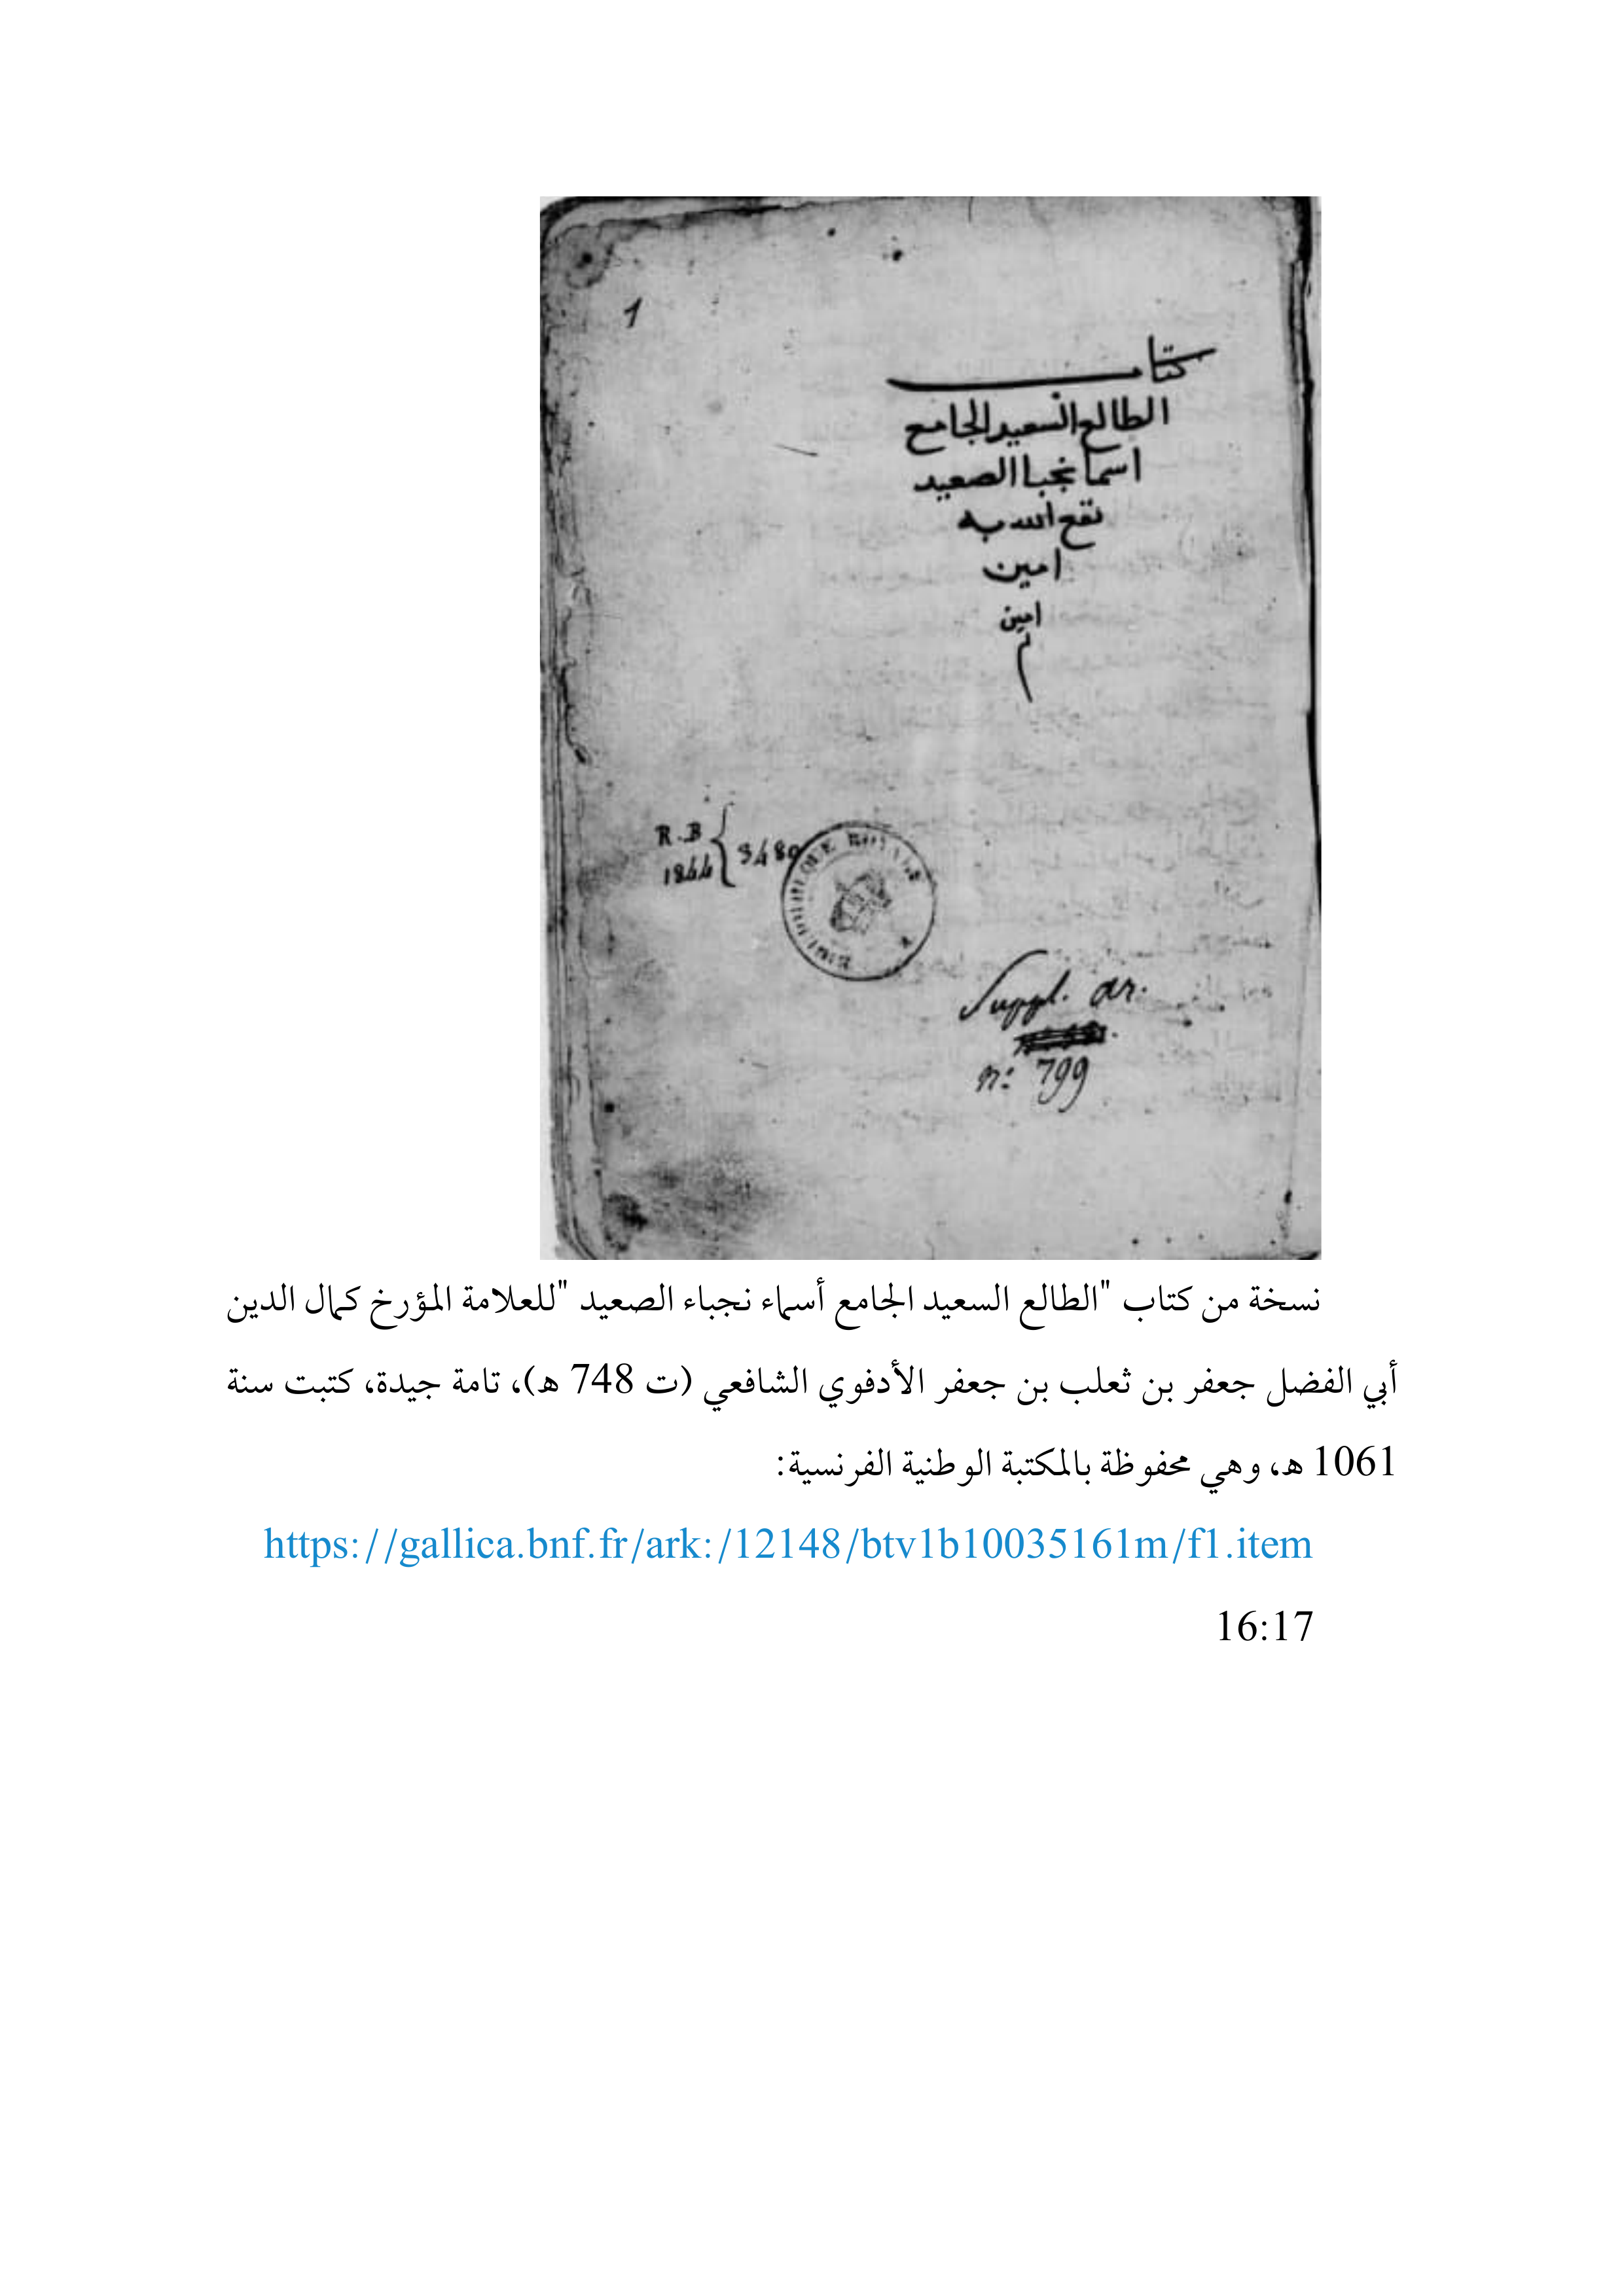 1
كتاب
الطالع السعيد الجامع
اسما نجبا الصعيد
نفع الله به
امين
امين
م
R.B
1844
3480
BIBLIOTHEQUE ROYALE
Suppl. ar.
n: 799
نسخة من كتاب "الطالع السعيد الجامع أسماء نجباء الصعيد "للعلامة المؤرخ كمال الدين
أبي الفضل جعفر بن ثعلب بن جعفر الأدفوي الشافعي (ت 748 ه)، تامة جيدة، كتبت سنة
1061 ه، وهي محفوظة بالمكتبة الوطنية الفرنسية:
https://gallica.bnf.fr/ark:/12148/btv1b10035161m/f1.item
16:17